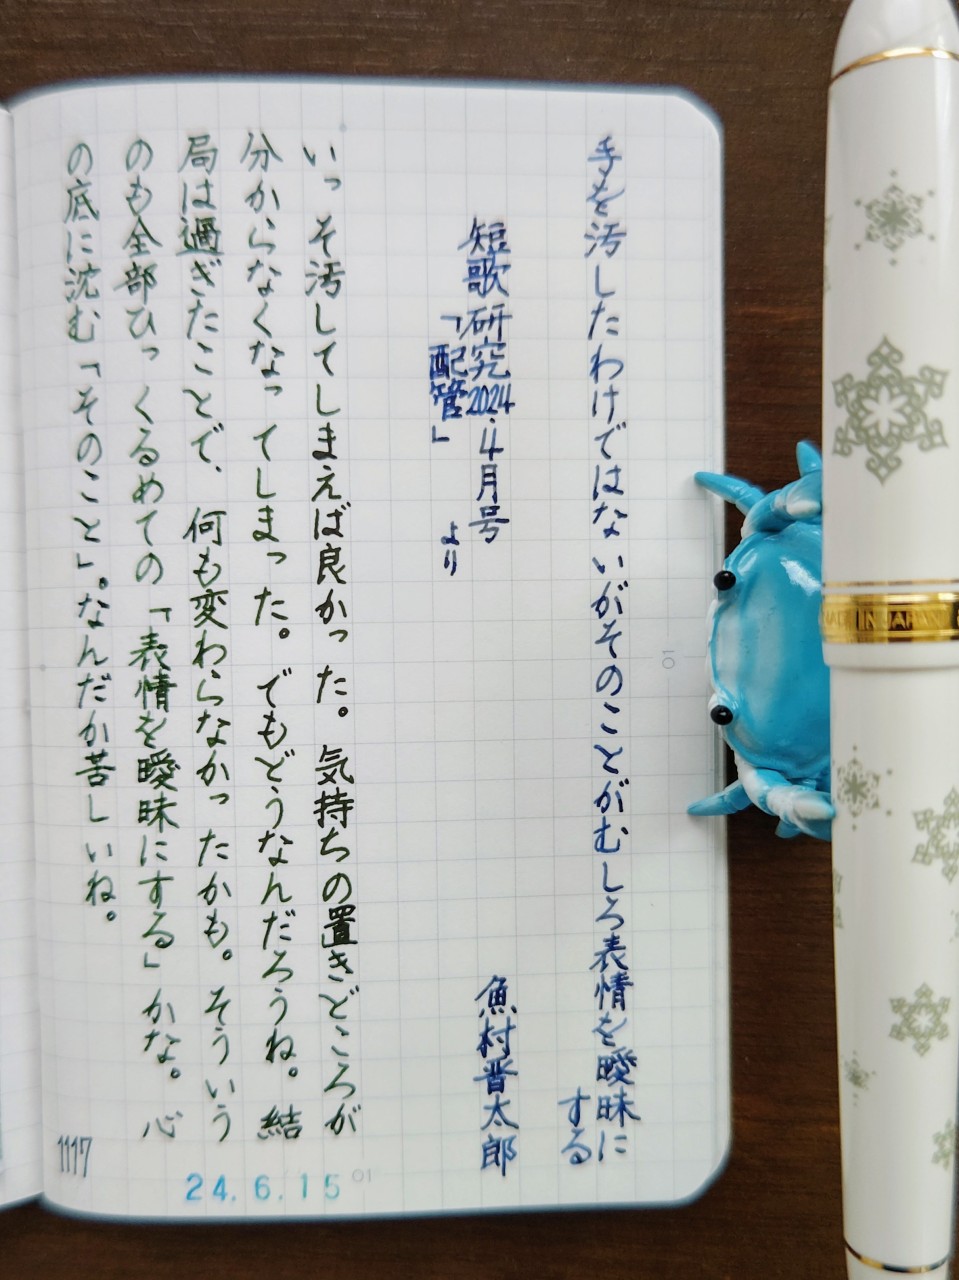 手を汚したわけではないがそのことがむしろ表情を曖昧に
する
短歌研究2024.4月号
「配管」より
魚村晋太郎
いっそ汚してしまえば良かった。気持ちの置きどころが
分からなくなってしまった。でもどうなんだろうね。結
局は過ぎたことで、何も変わらなかったかも。そういう
のも全部ひっくるめての「表情を曖昧にする」かな。心
の底に沈む「そのこと」。なんだか苦しいね。
1117
24.6.15
01
01
IN JAPAN